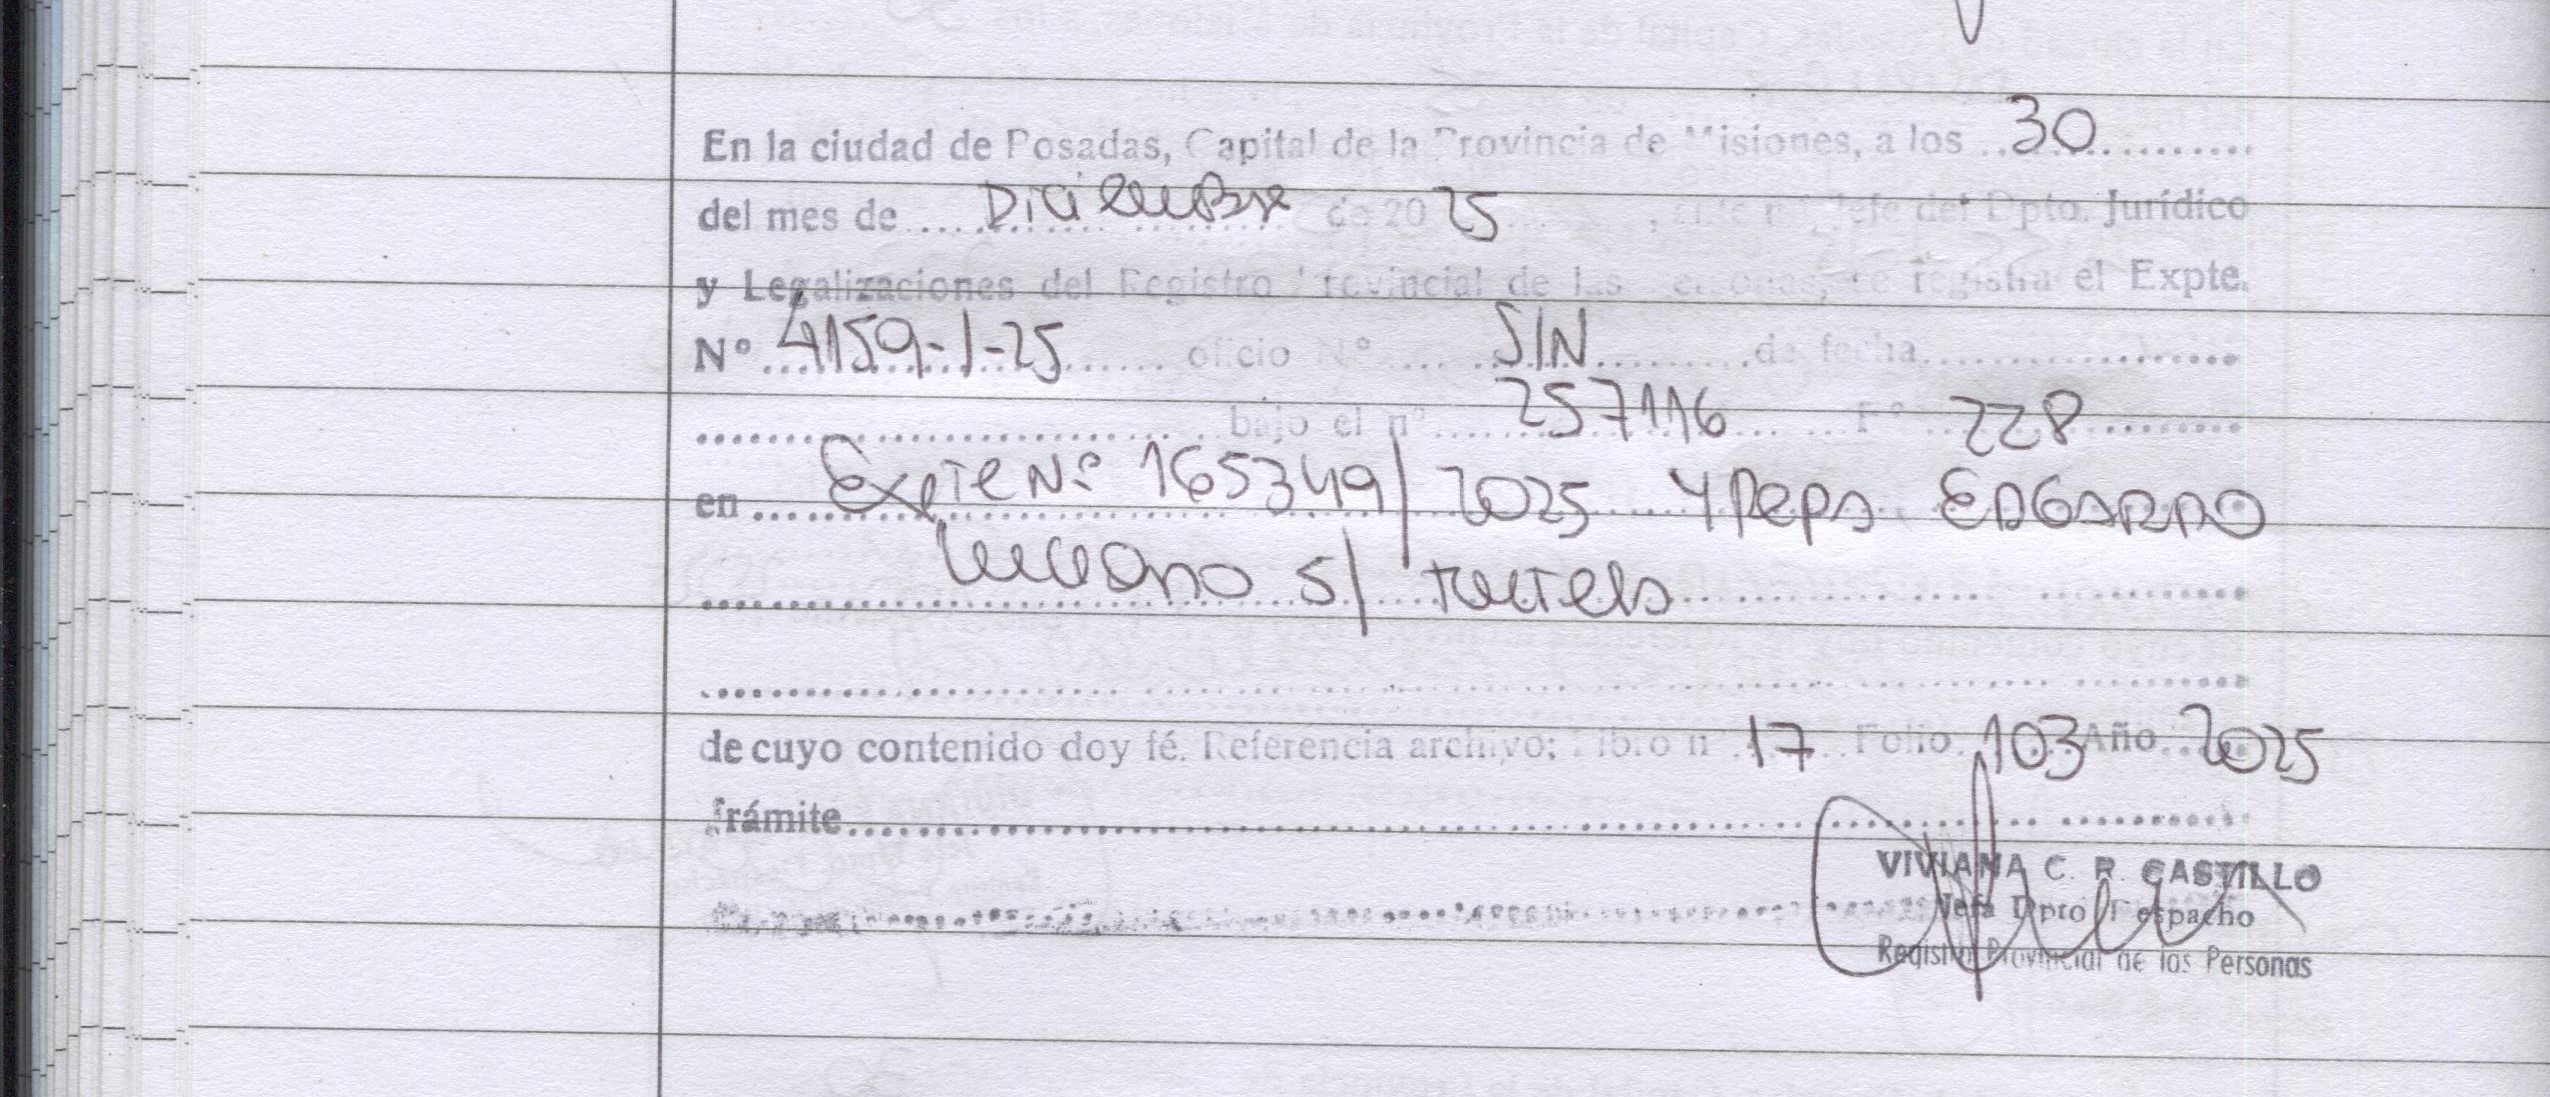 En la ciudad de Posadas, Capital de la Provincia de Misiones, a los 30
del mes de Diciembre de 2025, ante mí, Jefe del Dpto. Jurídico
y Legalizaciones del Registro Provincial de las Personas, se registra el Expte.
Nº 4159-1-25 oficio Nº S/N de fecha
bajo el nº 257116 Fº 228
en Expte Nº 165349/2025 EDGARDO
Luciano s/ tutela
de cuyo contenido doy fé. Referencia archivo: Libro nº 17 Folio 103 Año 2025
Trámite
VIVIANA C. R. CASTILLO
Jefa Dpto Despacho
Registro Provincial de las Personas